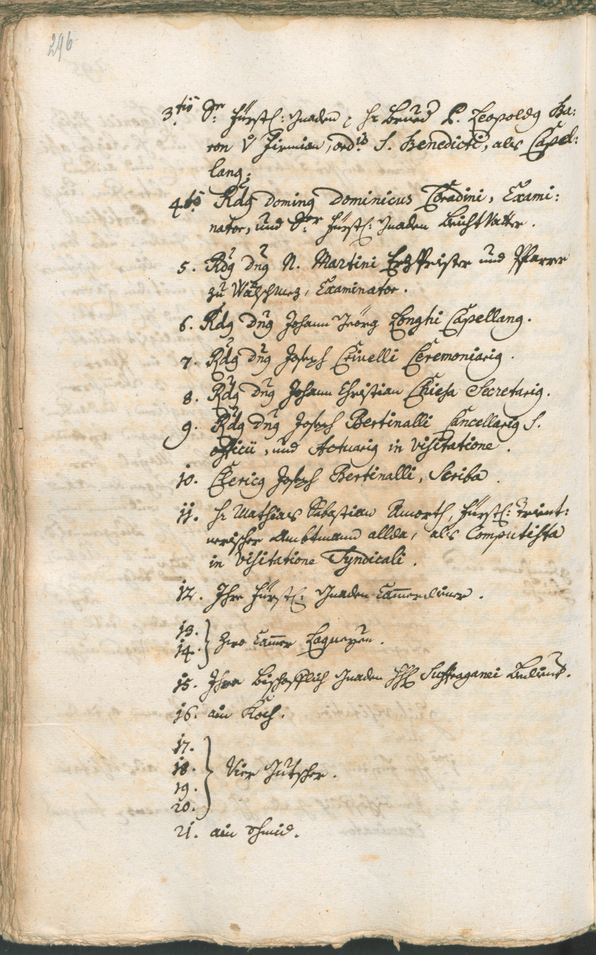 296
3tiò Sr: Fürstl: Gnaden H: P. Leopoldg Ba:
ron v Firmian, ordis S. Benedicti, als Capel:
lang;
4tò Rdg Doming Dominicus Coradini, Exami:
nator, und Sr Fürstl: Gnaden BeichtVatter.
5. Rdg Dng N. Martini ErtzPriester und Pfarrer
zu Examinator.
6. Rdg Dng Johann Georg Longhi Capellang.
7. Rdg Dng Joseph Crivelli Ceremoniarig.
8. Rdg Dng Johann Christian Chiesa Secretarig.
9. Rdg Dng Joseph Bertinalli Cancellarig S.
officii, und Actuarig in visitatione.
10. Clericg Joseph Bertinalli, Scriba.
11. H: Mathias Sabastian Amorth Fürstl: Trient:
nerischer Ambtmann allda, als Computista
in Visitatione Syndicali.
12. Ihro Fürstl: Gnaden Cammerdiener.
13.
14. Zwei Cammer Laqueyen.
15. Ihro Bischofflich Gnaden Suffraganei Bedient.
16. ain Koch.
17.
18. Vier Gutscher.
19.
20.
21. ain Schmid.